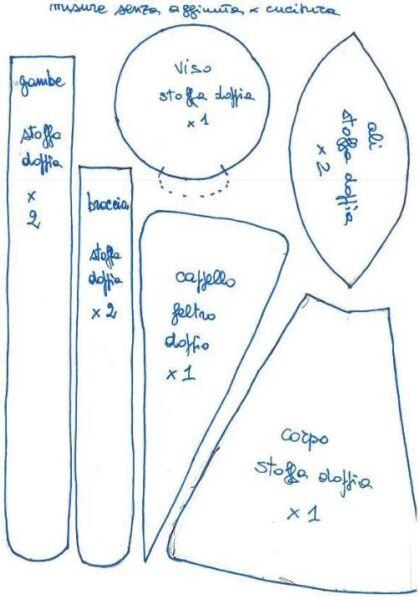 misure senza aggiunta x cucitura
gambe
stoffa
doppia
x
2
braccia
stoffa
doppia
x 2
viso
stoffa doppia
x 1
ali
stoffa doppia
x 2
cappello
feltro
doppio
x 1
corpo
stoffa doppia
x 1